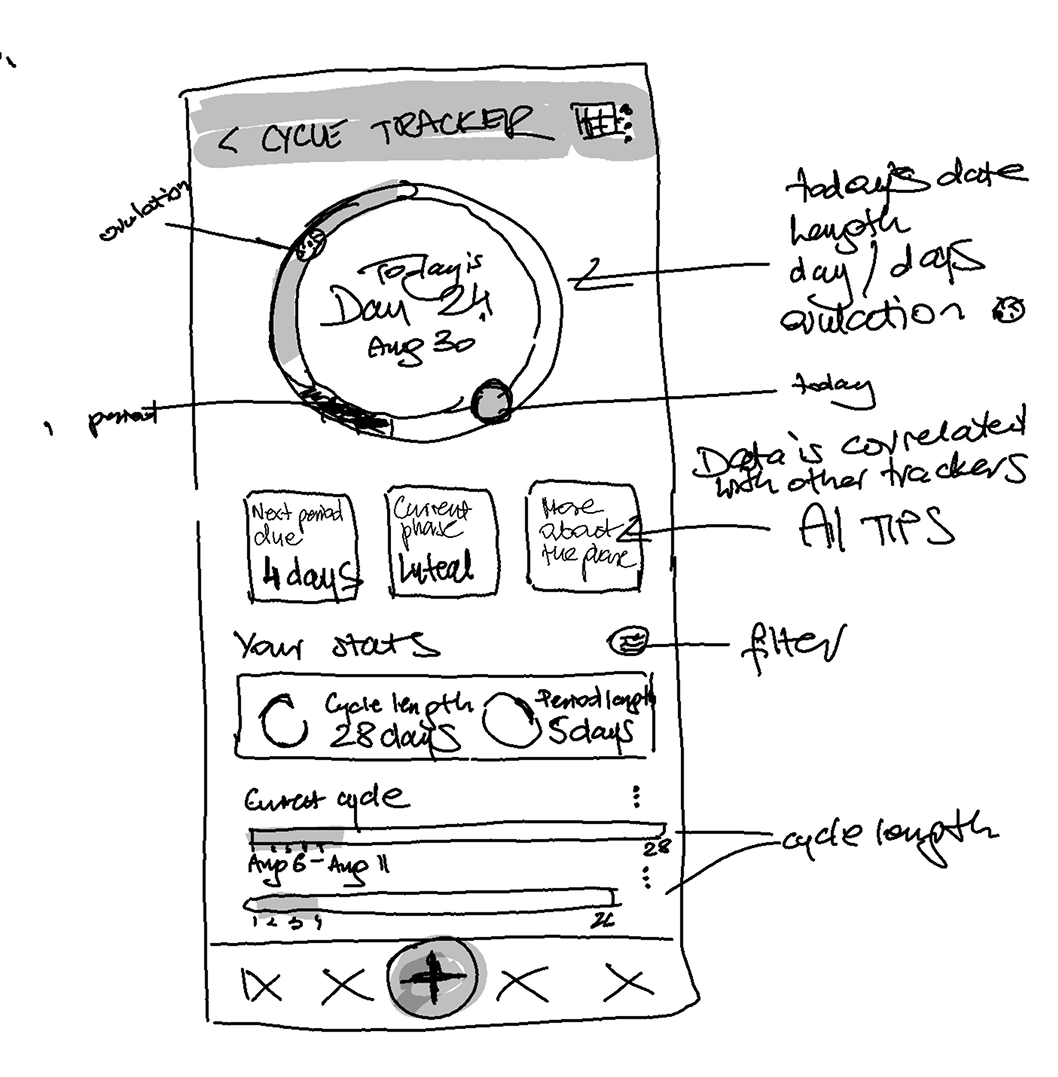 < CYCLE TRACKER
ovulation
Today is
Day 24,
Aug 30
today's date
length
day / days
ovulation
period
today
Data is correlated
with other trackers
AI TIPS
Next period
due
4 days
Current
phase
Luteal
More
about
the phase
Your stats
filter
Cycle length
28 days
Period length
5 days
Current cycle
28
Aug 6 - Aug 11
cycle length
1 2 3 4